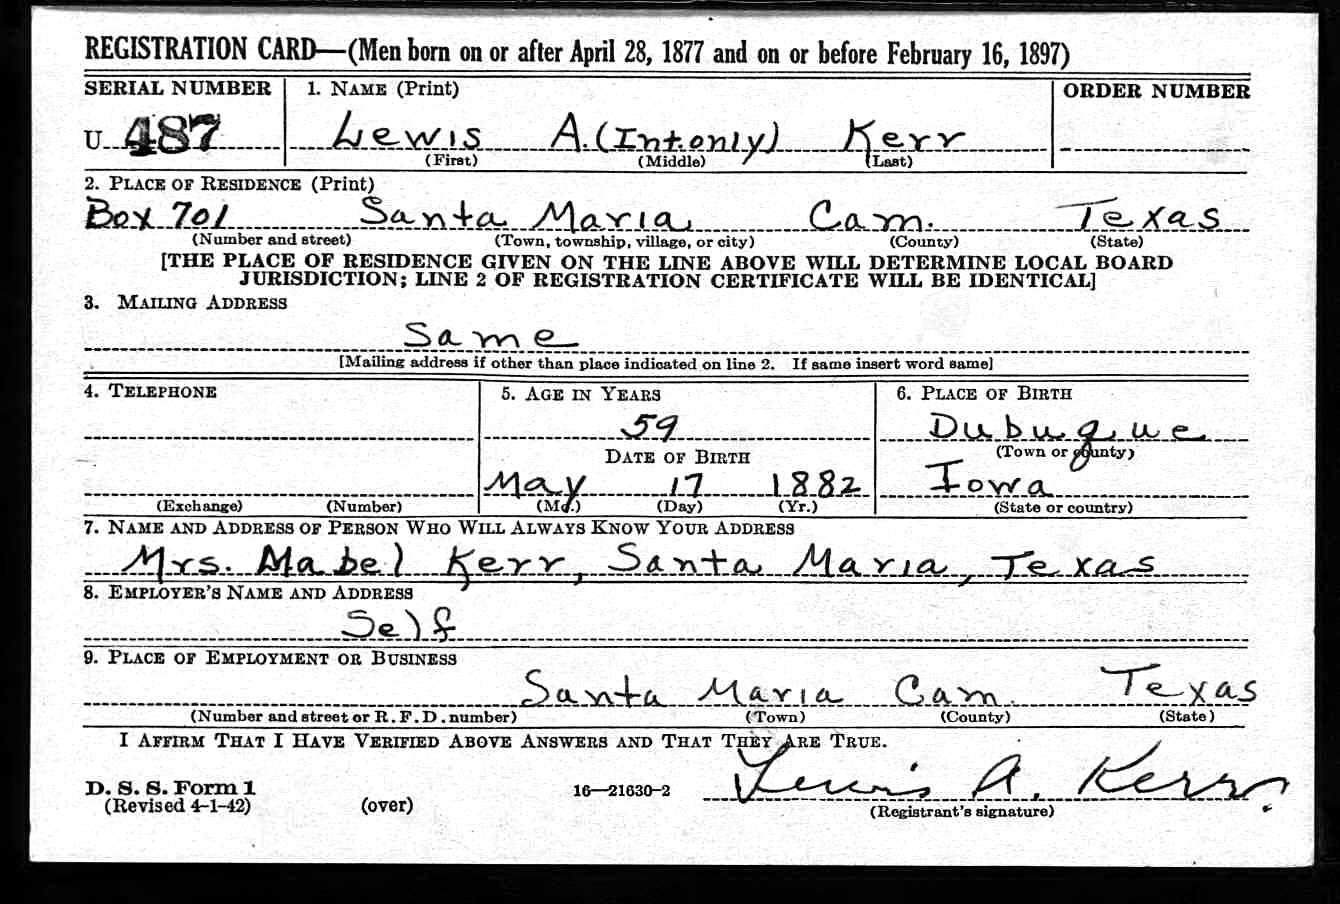 REGISTRATION CARD—(Men born on or after April 28, 1877 and on or before February 16, 1897)
SERIAL NUMBER 1. NAME (Print) ORDER NUMBER
U 487 Lewis A. (Int. only) Kerr
(First) (Middle) (Last)
2. PLACE OF RESIDENCE (Print)
Box 701 Santa Maria Cam. Texas
(Number and street) (Town, township, village, or city) (County) (State)
[THE PLACE OF RESIDENCE GIVEN ON THE LINE ABOVE WILL DETERMINE LOCAL BOARD
JURISDICTION; LINE 2 OF REGISTRATION CERTIFICATE WILL BE IDENTICAL]
3. MAILING ADDRESS
Same
[Mailing address if other than place indicated on line 2. If same insert word same]
4. TELEPHONE 5. AGE IN YEARS 6. PLACE OF BIRTH
59 Dubuque
DATE OF BIRTH (Town or county)
May 17 1882 Iowa
(Exchange) (Number) (Mo.) (Day) (Yr.) (State or country)
7. NAME AND ADDRESS OF PERSON WHO WILL ALWAYS KNOW YOUR ADDRESS
Mrs. Mabel Kerr, Santa Maria, Texas
8. EMPLOYER'S NAME AND ADDRESS
Self
9. PLACE OF EMPLOYMENT OR BUSINESS
Santa Maria Cam. Texas
(Number and street or R. F. D. number) (Town) (County) (State)
I AFFIRM THAT I HAVE VERIFIED ABOVE ANSWERS AND THAT THEY ARE TRUE.
D. S. S. Form 1 16—21630-2 Lewis A. Kerr.
(Revised 4-1-42) (over) (Registrant's signature)